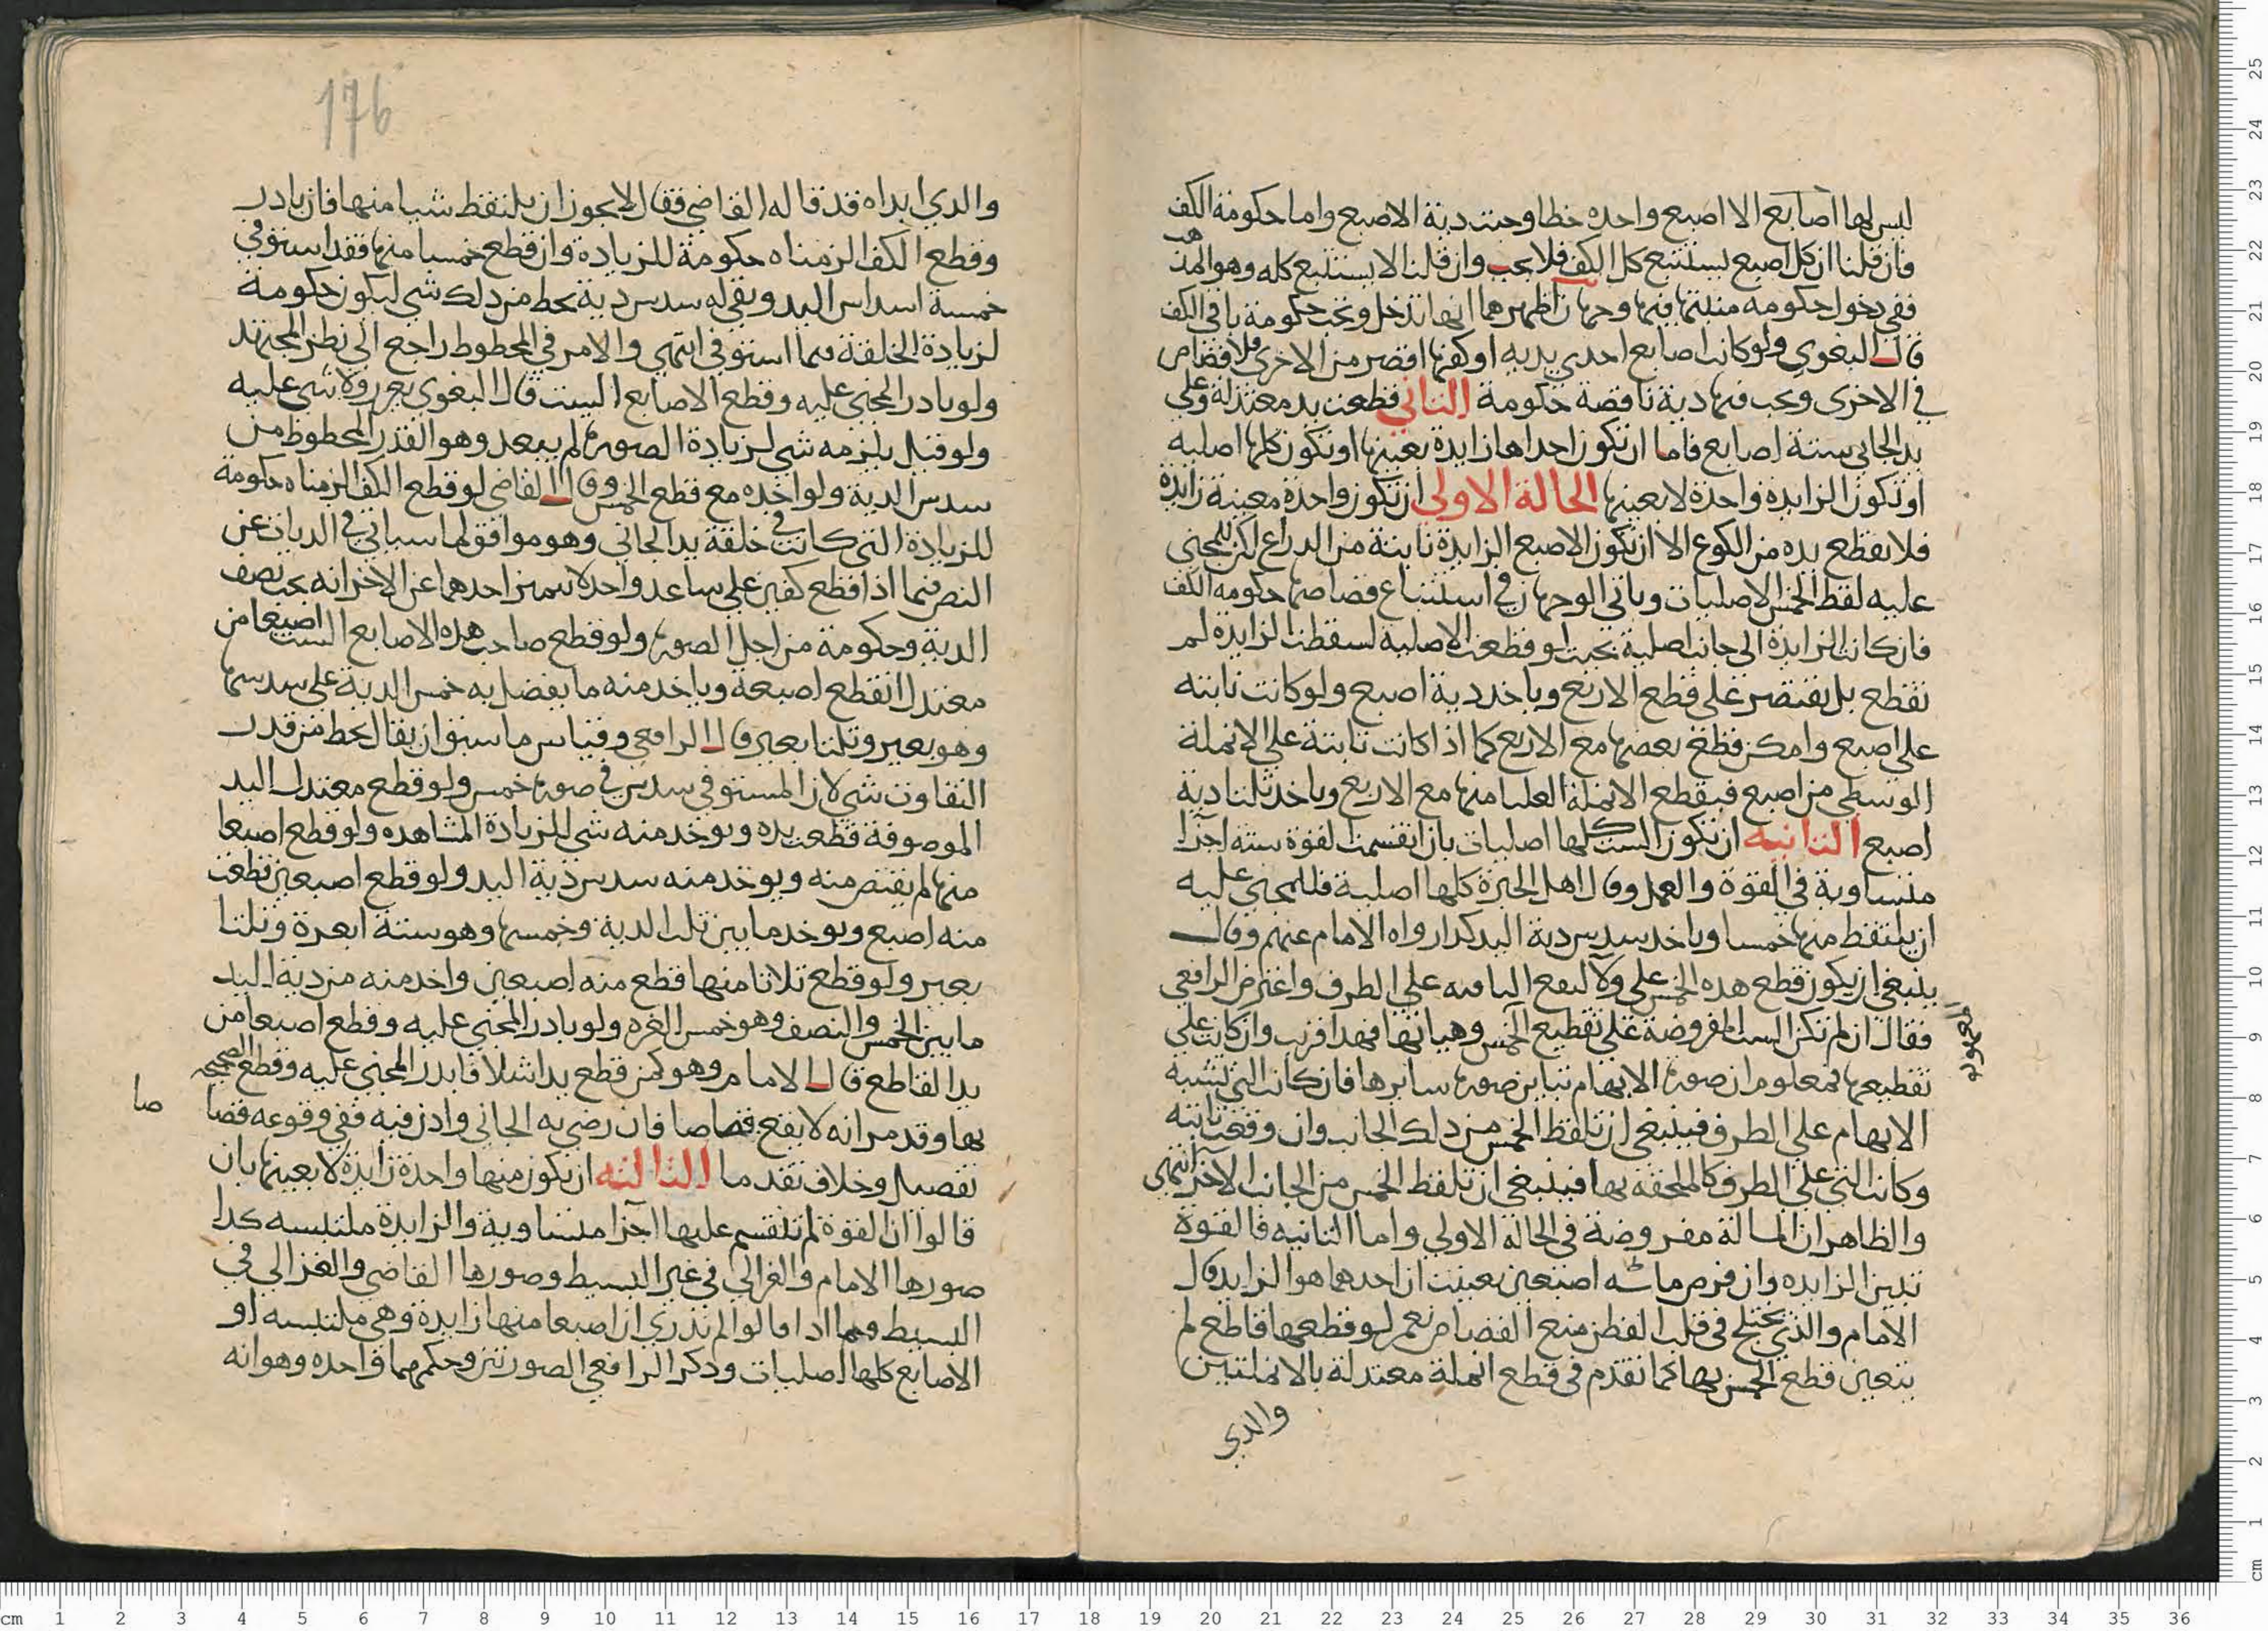 ليس لها اصابع الا اصبع واحده خطا وجبت دية الاصبع واما حكومة الكف
فان قلنا ان كل اصبع يستتبع كل الكف فلا يجب وان قلنا لا يستتبع كله وهو المذهب
ففي دخول حكومه منبتها فيها وجهان اظهرهما انها تدخل وتجب حكومة باقي الكف
قال البغوي ولو كانت اصابع احدي يديه او كفها اقصر من الاخرى فلا قصاص
في الاخرى ويجب فيها دية ناقصة حكومة الثاني قطعت يد معتدلة وعلى
يد الجاني ستة اصابع فاما ان تكون احداها زايدة بعينها او تكون كلها اصليه
او تكون الزايدة واحدة لا بعينها الحالة الاولي ان تكون واحدة معينة زايدة
فلا يقطع يده من الكوع الا ان تكون الاصبع الزايدة نابتة من الدراع لكن للمجني
عليه لقط الخمس الاصليات وياتي الوجهان في استتباع قصاصها حكومه الكف
فان كانت الزايدة الي جانب اصلية بحيث لو قطعت الاصليه لسقطت الزايدة لم
تقطع بل يقتصر على قطع الاربع وياخد دية اصبع ولو كانت نابته
على اصبع وامكن قطع بعضها مع الاربع كما اذا كانت نابتة على الانملة
الوسطي من اصبع فيقطع الانملة العليا منها مع الاربع وياخد ثلثا دية
اصبع الثانيه ان تكون الست كلها اصليات بان انقسمت القوة سته اجزا
متساوية في القوة والعمل وقال اهل الخبرة كلها اصلية فللمجني عليه
ان يلتقط منها خمسا وياخد سدس دية اليد كدا رواه الامام عنهم وقال
ينبغي ان يكون قطع هده الخمس على ولا لتقع الباقيه علي الطرف واعترض الرافعي
فقال ان لم تكن الست المفروضة على تقطيع الخمس وهيئاتها فهدا قريب وان كانت علي
تقطيعها فمعلوم ان صورة الابهام تباين صورة سايرها فان كانت التي تشبه
الابهام على الطرف فينبغي ان تلقط الخمس من دلك الجانب وان وقعت ثانيه
وكانت التي علي الطرف كالملحقه بها فينبغي ان تلقط الخمس من الجانب الاخر انتهى
والظاهر ان المسالة مفروضة في الحالة الاولي واما الثانيه فالقوة
تبين الزايده وان فرض اصبعين تعينت ان احدهما هو الزايد قال
الامام والذي يختلج في قلب الفطن منع القصاص نعم لو قطعها قاطع لم
يتعين قطع الخمس بها كما تقدم في قطع انملة معتدلة بالانملتين
والدي
المعهوده
176
والدي ابداه قد قاله القاضي فقال لا يجوز ان يلتقط شيا منها فان بادر
وقطع الكف الزمناه حكومة للزيادة وان قطع خمسا منها فقد استوفي
خمسة اسداس اليد وبقي له سدس دية يحط من دلك شي ليكون حكومة
لزيادة الخلقة فيما استوفي انتهي والامر في المحطوط راجع الي نظر المجتهد
ولو بادر المجني عليه وقطع الاصابع الست قال البغوي يعزر ولا شي عليه
ولو قيل يلزمه شي لزيادة الصورة لم يبعد وهو القدر المحطوط من
سدس الدية ولو اخده مع قطع الخمس وقال القاضي لو قطع الكف الزمناه حكومة
للزيادة التي كانت في خلقة يد الجاني وهو موافق لما سياتي في الديات عن
النص فيما اذا قطع كفين على ساعد واحد لا يتميز احدهما عن الاخر انه يجب نصف
الدية وحكومة من اجل الصورة ولو قطع صاحب هده الاصابع الست اصبعا من
معتدل انقطع اصبعه وياخد منه ما يفضل به خمس الدية علي سدسها
وهو بعير وثلثا بعير قال الرافعي وقياس ما سبق ان يقال يحط من قدر
التفاوت شي لان المستوفي سدس في صورة خمس ولو قطع معتدل اليد
الموصوفة قطعت يده ويوخد منه شي للزيادة المشاهده ولو قطع اصبعا
منها لم يقتص منه ويوخد منه سدس دية اليد ولو قطع اصبعين قطعت
منه اصبع ويوخد ما بين ثلث الدية وخمسها وهو ستة ابعرة وثلثا
بعير ولو قطع ثلاثا منها قطع منه اصبعين واخد منه من دية اليد
ما بين الخمس والنصف وهو خمس الغره ولو بادر المجني عليه وقطع اصبعا من
يد القاطع قال الامام وهو كمن قطع يدا شلا فابدر المجني عليه وقطع الصحيحه
بها وقد مر انه لا يقع قصاصا فان رضي به الجاني واذن فيه ففي وقوعه قصا
صا
تفصيل وخلاف تقدما الثالثه ان تكون منها واحدة زايدة لا بعينها بان
قالوا ان القوة لم تنقسم عليها اجزا متساوية والزايدة ملتبسه كدا
صورها الامام والغزالي في غير البسيط وصورها القاضي والغزالي في
البسيط وبما ادا قالوا لم ندري ان اصبعا منها زايدة وهي ملتبسه او
الاصابع كلها اصليات ودكر الرافعي الصورتين وحكمهما واحده وهو انه